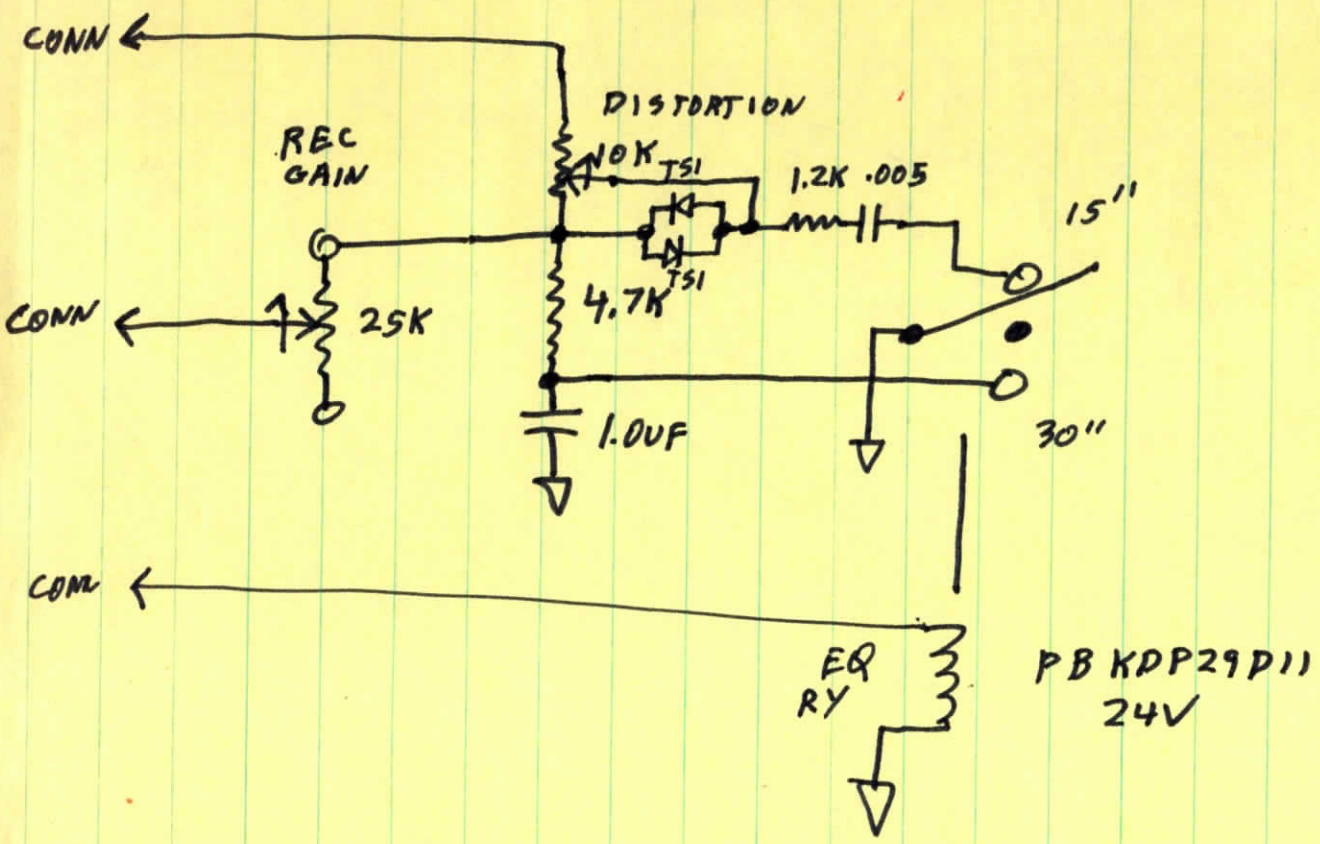 CONN
DISTORTION
REC
GAIN
10K
TS1
1.2K .005
15"
TS1
4.7K
CONN
25K
1.0UF
30"
CONN
EQ
RY
PB KDP29D11
24V